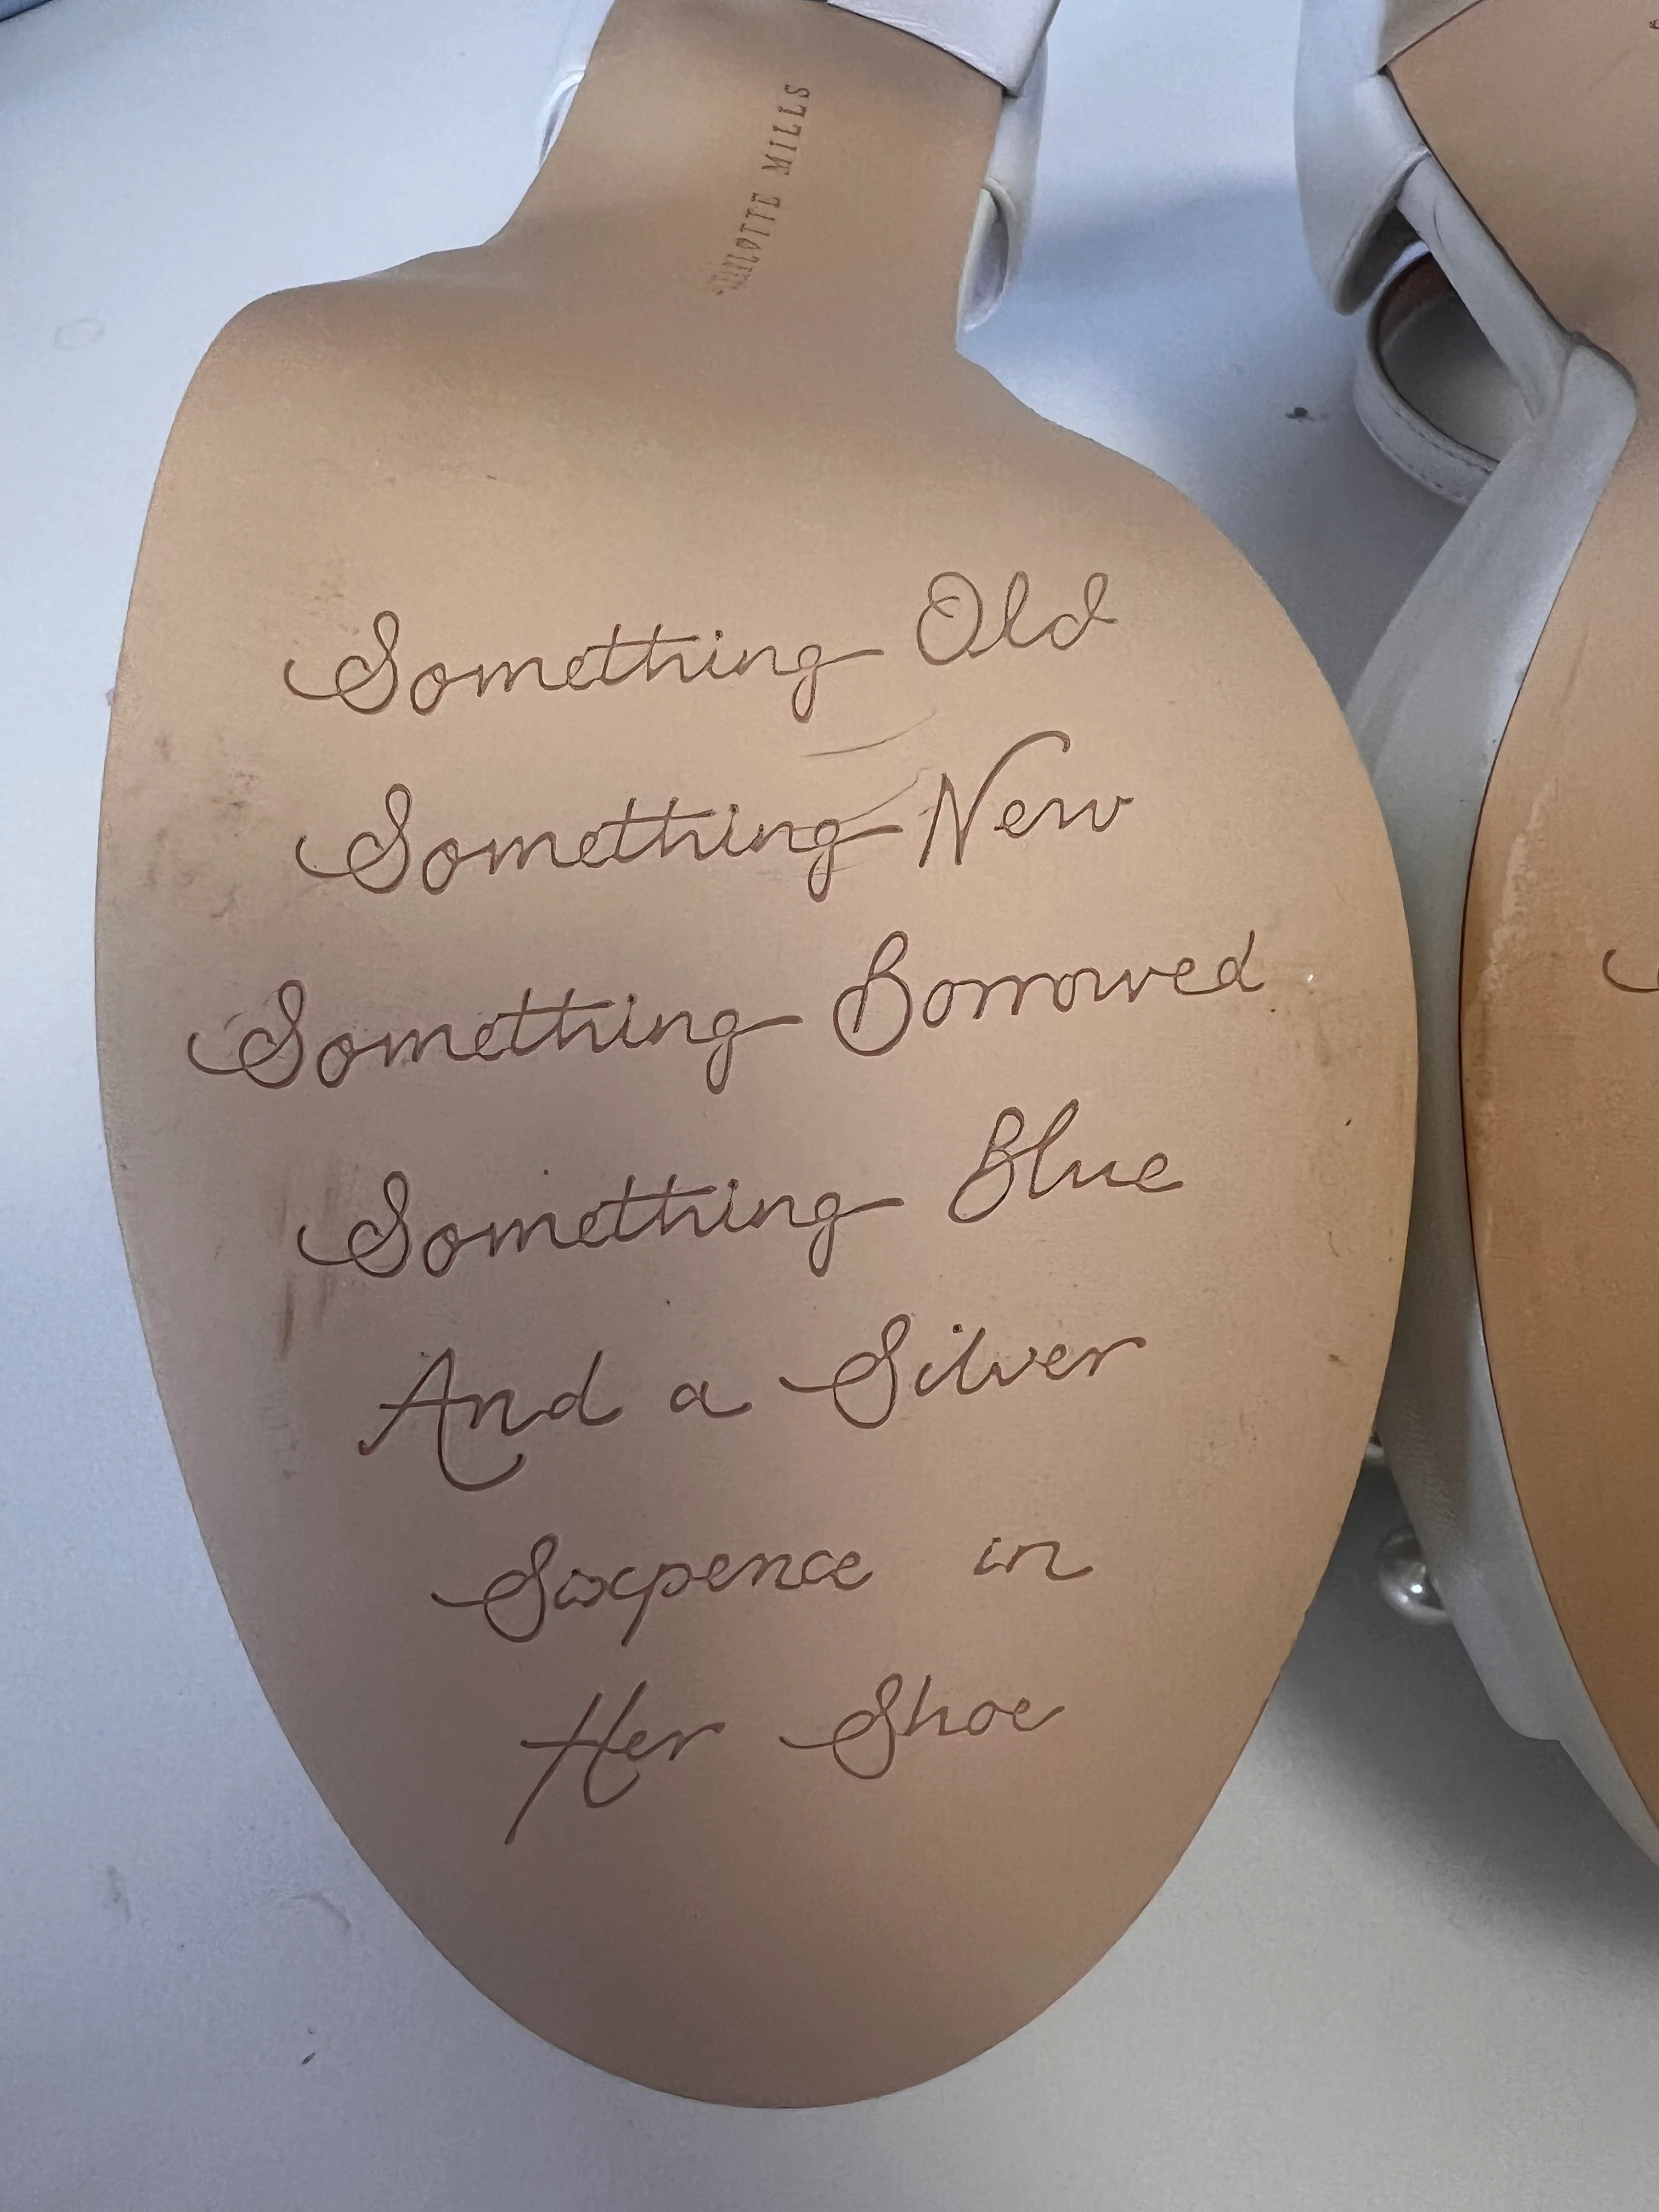 CHARLOTTE MILLS
Something Old
Something New
Something Borrowed
Something Blue
And a Silver
Sixpence in
Her Shoe